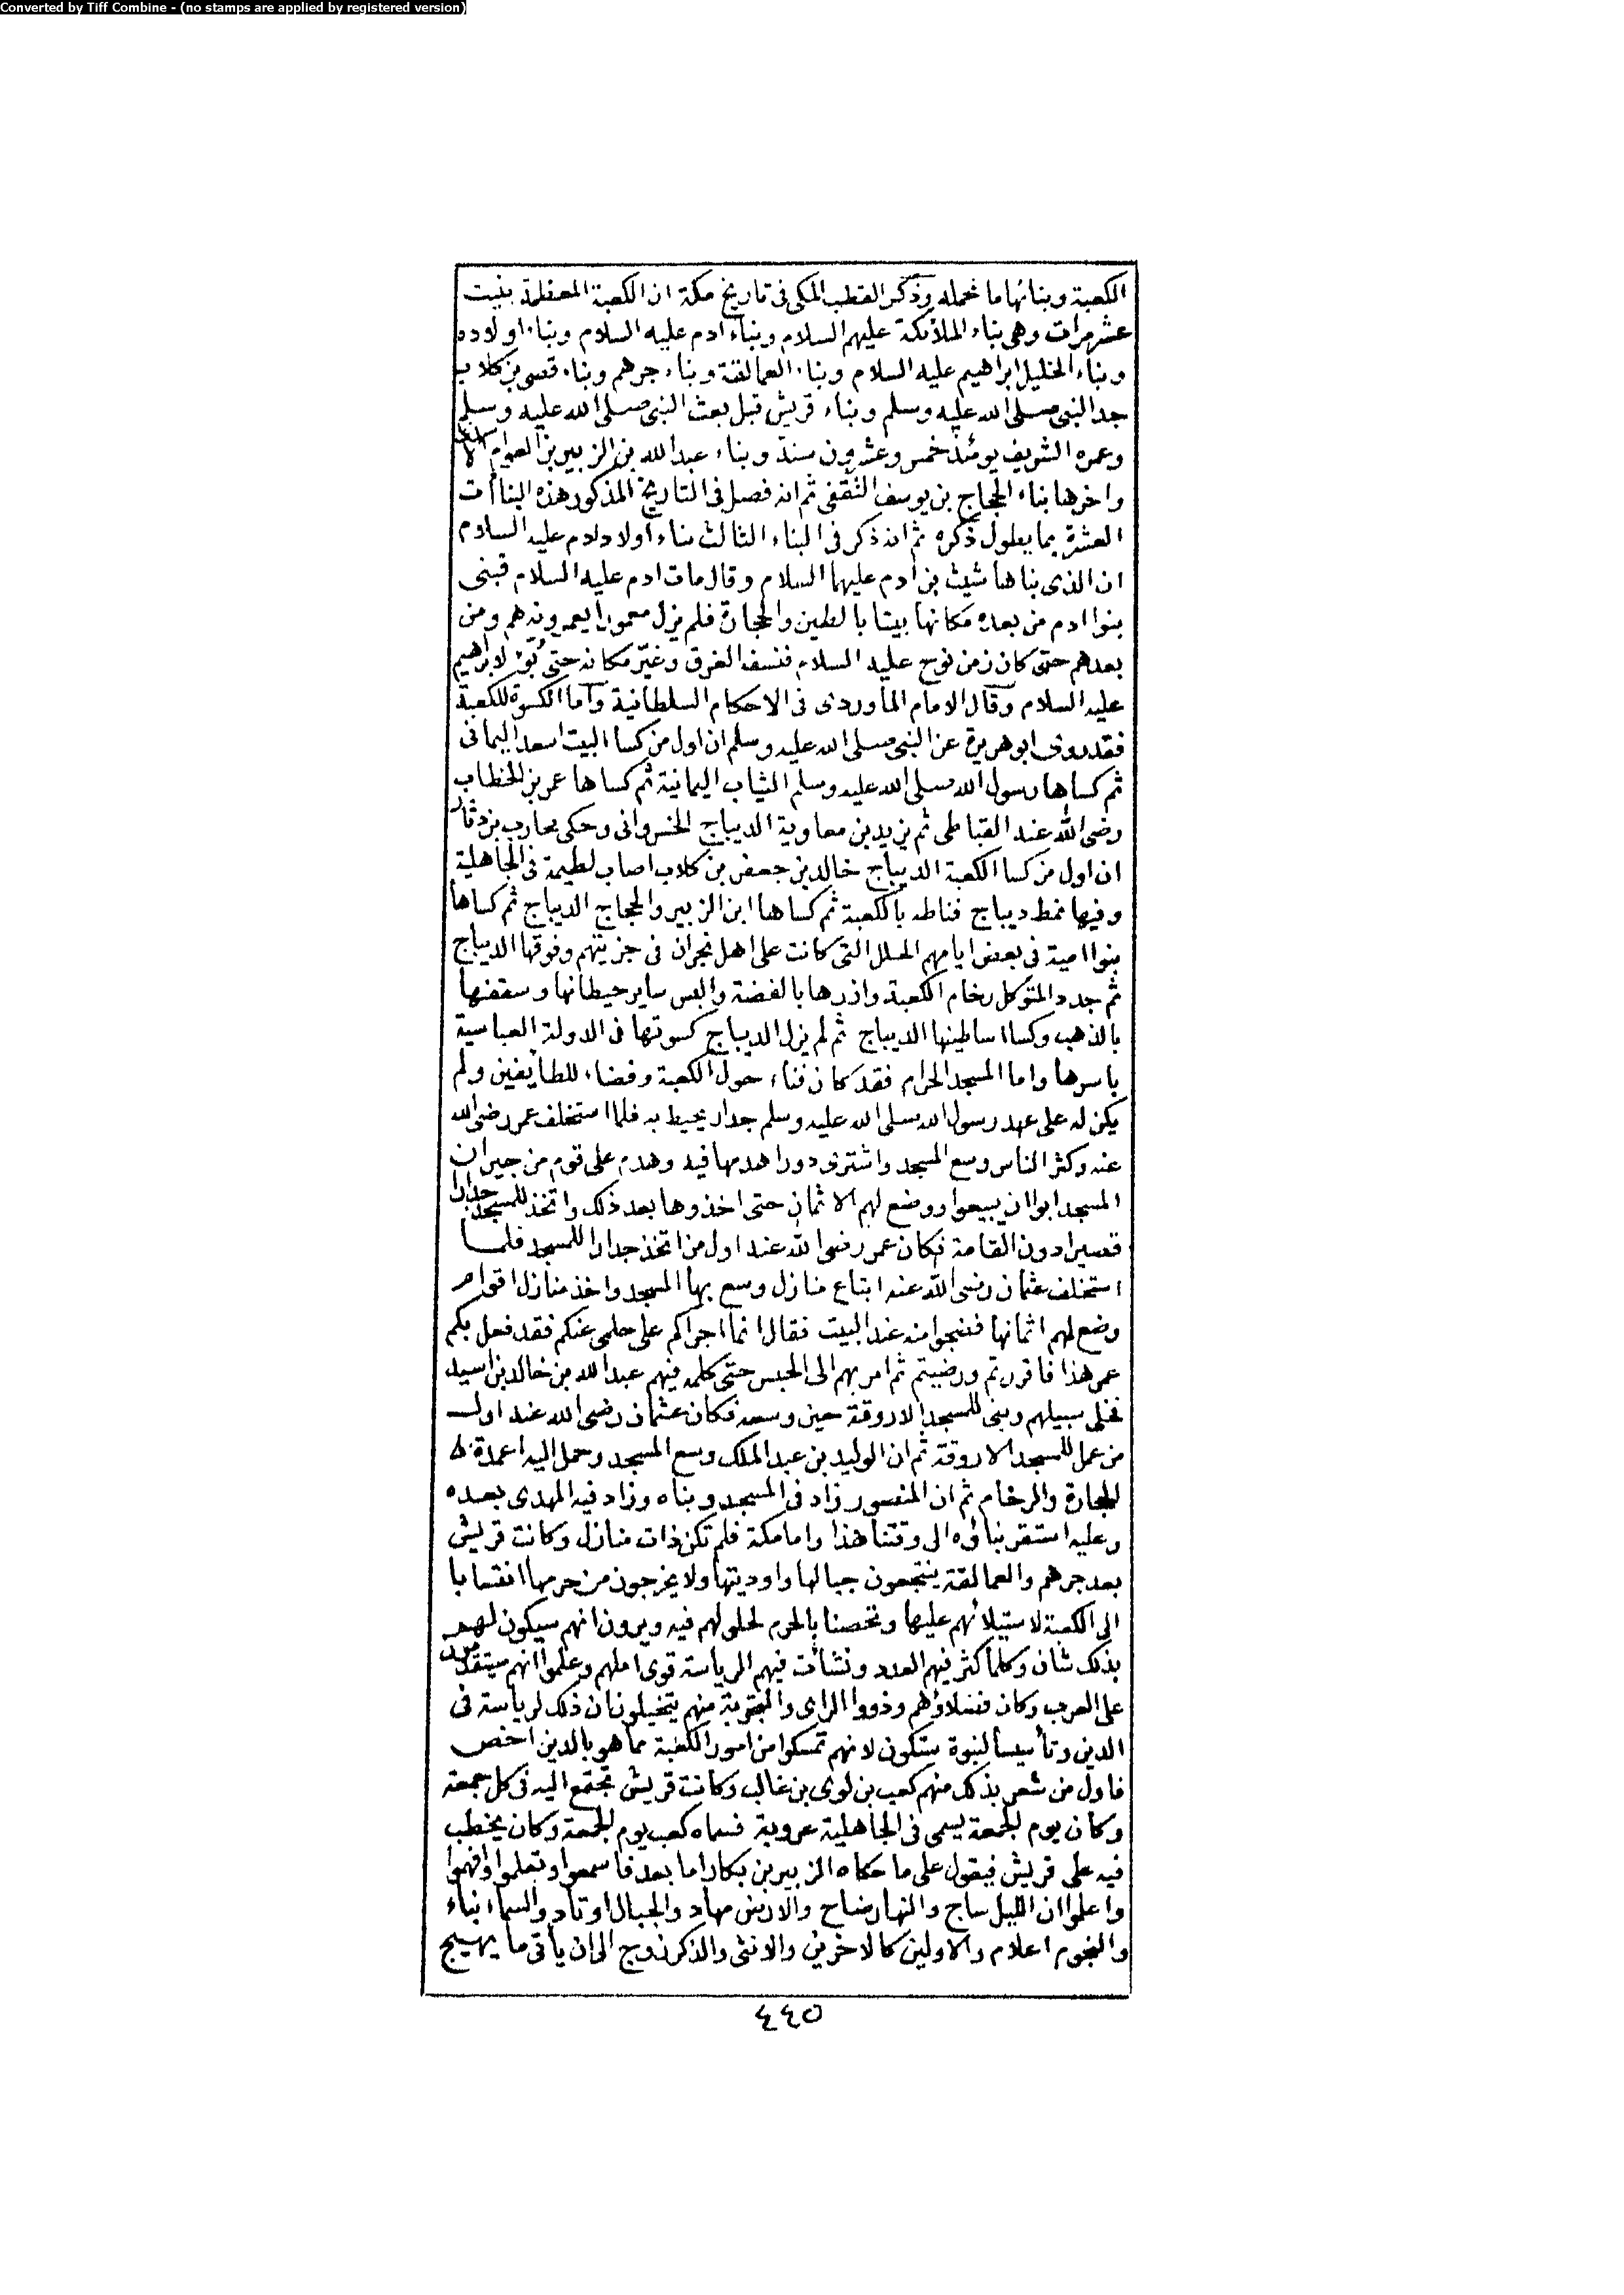 Converted by Tiff Combine - (no stamps are applied by registered version)
الكعبة وبنائها ما نحمله وذكر القطب المكى فى تاريخ مكة ان الكعبة المعظمة بنيت
عشر مرات وهى بناء الملائكة عليهم السلام وبناء ادم عليه السلام وبناء اولاده
وبناء الخليل ابراهيم عليه السلام وبناء العمالقة وبناء جرهم وبناء قصى بن كلاب
جد النبى صلى الله عليه وسلم وبناء قريش قبل بعث النبى صلى الله عليه وسلم
وعمره الشريف يومئذ خمس وعشرون سنة وبناء عبد الله بن الزبير بن العوام
واخرها بناء الحجاج بن يوسف الثقفى ثم انه فصل فى التاريخ المذكور هذه البناأت
العشرة بما يطول ذكره ثم انه ذكر فى البناء الثالث بناء اولاد ادم عليه السلام
ان الذى بناها شيث بن ادم عليهما السلام وقال مات ادم عليه السلام فبنى
بنوا ادم من بعده مكانها بيتا بالطين والحجارة فلم يزل معمورا يعمرونه هم ومن
بعدهم حتى كان زمن نوح عليه السلام فنسفه الغرق وغيّر مكانه حتى بوّئ لابراهيم
عليه السلام وقال الامام الماوردى فى الاحكام السلطانية واما الكسوة للكعبة
فقد روى ابو هريرة عن النبى صلى الله عليه وسلم ان اول من كسا البيت اسعد اليمانى
ثم كساها رسول الله صلى الله عليه وسلم الثياب اليمانية ثم كساها عمر بن الخطاب
رضى الله عنه القباطى ثم يزيد بن معاوية الديباج الخسروانى وحكى محارب بن دثار
ان اول من كسا الكعبة الديباج خالد بن جعفر بن كلاب اصاب لطيمة فى الجاهلية
وفيها نمط ديباج فناطه بالكعبة ثم كساها ابن الزبير والحجاج الديباج ثم كساها
بنوا امية فى بعض ايامهم الحلل التى كانت على اهل نجران فى جزيتهم وفوقها الديباج
ثم جدد المتوكل رخام الكعبة وازرها بالفضة والبس ساير حيطانها وسقفها
بالذهب وكسا اساطينها الديباج ثم لم يزل الديباج كسوتها فى الدولة العباسية
باسرها واما المسجد الحرام فقد كان فناء حول الكعبة وفضاء للطايفين ولم
يكن له على عهد رسول الله صلى الله عليه وسلم جدار يحيط به فلما استخلف عمر رضى الله
عنه وكثر الناس وسع المسجد واشترى دورا هدمها فيه وهدم على قوم من جيران
المسجد ابوا ان يبيعوا ووضع لهم الاثمان حتى اخذوها بعد ذلك واتخذ للمسجد جدارا
قصيرا دون القامة فكان عمر رضى الله عنه اول من اتخذ جدارا للمسجد فلما
استخلف عثمان رضى الله عنه ابتاع منازل وسع بها المسجد واخذ منازل اقوام
وضع لهم اثمانها فضجوا منه عند البيت فقال انما اجراكم على حلمى عنكم فقد فعل بكم
عمر هذا فاقررتم ورضيتم ثم امر بهم الى الحبس حتى كلمه فيهم عبد الله بن خالد بن اسيد
فخلى سبيلهم وبنى للمسجد الاروقة حين وسعه فكان عثمان رضى الله عنه اول
من عمل للمسجد الاروقة ثم ان الوليد بن عبد الملك وسع المسجد وحمل اليه اعمدة
الحجارة والرخام ثم ان المنصور زاد فى المسجد وبناه وزاد فيه المهدى بعده
وعليه استقر بناؤه الى وقتنا هذا واما مكة فلم تكن ذات منازل وكانت قريش
بعد جرهم والعمالقة ينتجعون جبالها واوديتها ولا يخرجون من حرمها انتسابا
الى الكعبة لاستيلائهم عليها وتخصنا بالحرم لحلولهم فيه ويرون انهم سيكون لهم
بذلك شان وكلما كثر فيهم العدد ونشات فيهم الرياسة قوى املهم وعلموا انهم سيتقدمون
على العرب وكان فضلاؤهم وذووا الراى والتجربة منهم يتخيلون ان ذلك لرياسة فى
الدين وتأسيسا لنبوة ستكون لانهم تمسكوا من امور الكعبة مما هو بالدين اخص
فاول من شعر بذلك منهم كعب بن لوى بن غالب وكانت قريش تجتمع اليه فى كل جمعة
وكان يوم الجمعة يسمى فى الجاهلية عروبة فسماه كعب يوم الجمعة وكان يخطب
فيه على قريش فيقول على ما حكاه الزبير بن بكار اما بعد فاسمعوا وتعلموا وافهموا
واعلموا ان الليل ساج والنهار ضاح والارض مهاد والجبال اوتاد والسماء بناء
والنجوم اعلام والاولين كالاخرين والانثى والذكر زوج الى ان يأتى ما يهيج
٤٤٥